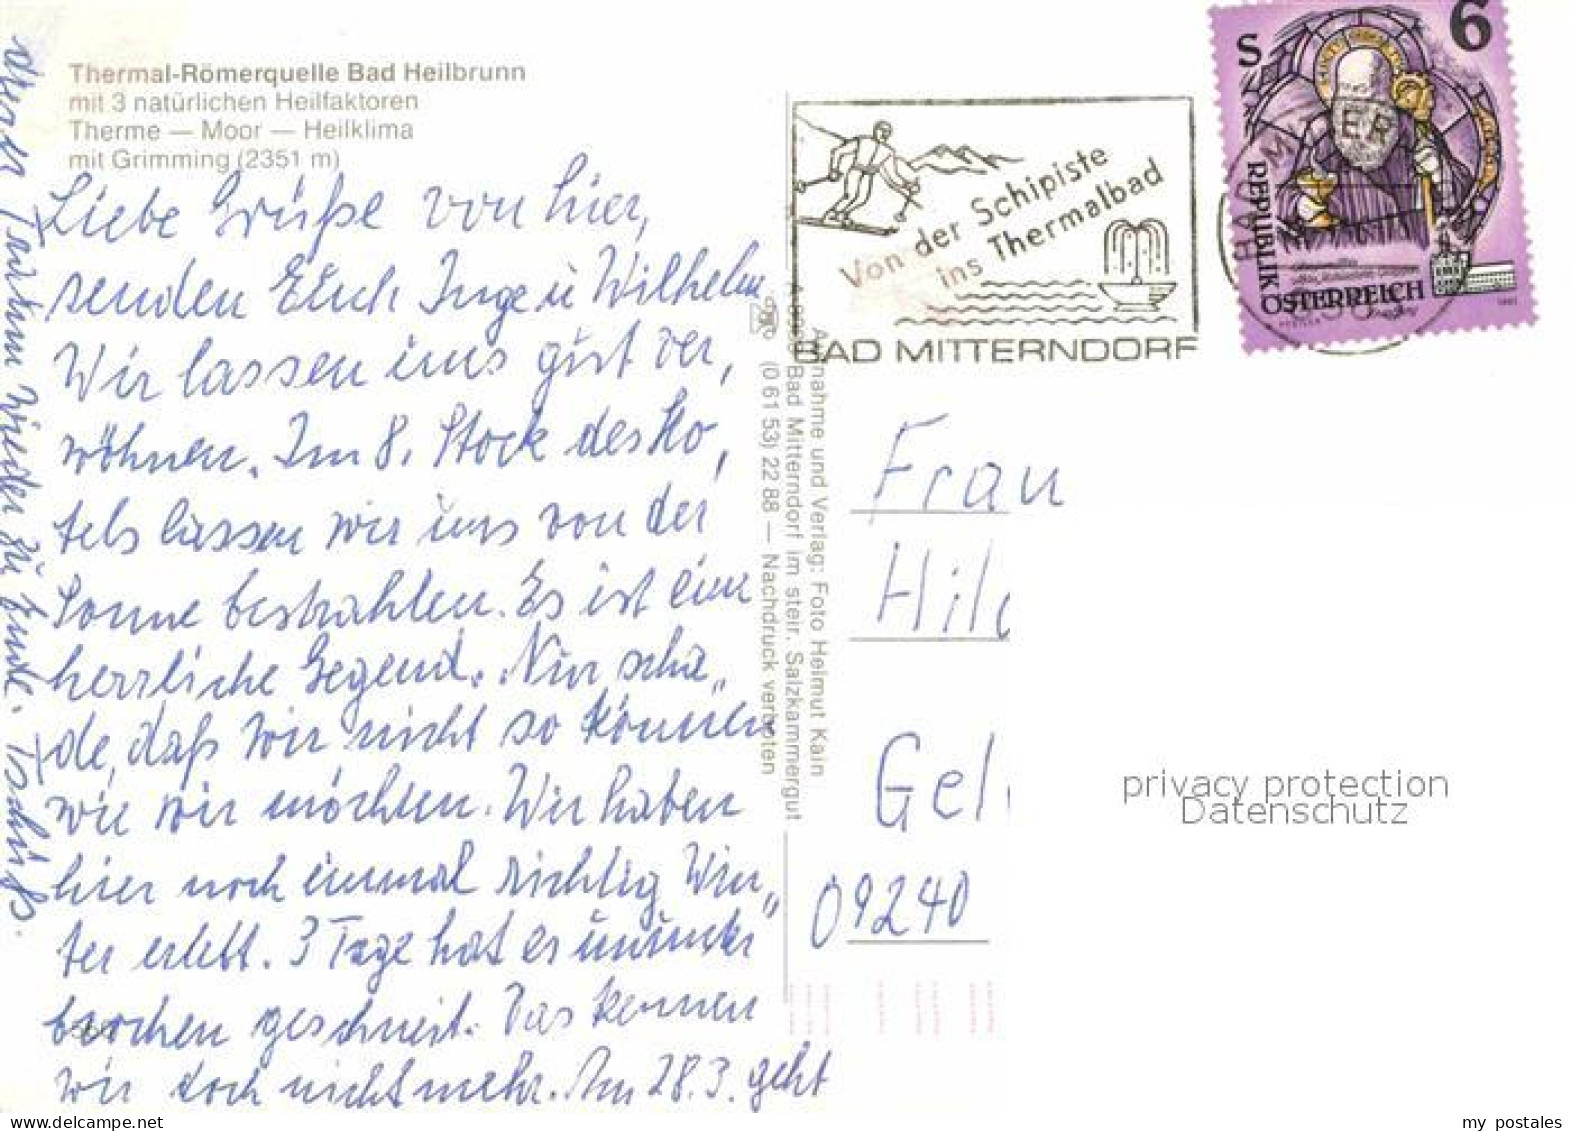 Thermal-Römerquelle Bad Heilbrunn
mit 3 natürlichen Heilfaktoren
Therme — Moor — Heilklima
mit Grimming (2351 m)
Liebe Grüße von hier,
senden Euch Inge u Wilhelm
Wir lassen uns gut ver,
wöhnen. Im 8. Stock des Ho,
tels lassen wir uns von der
Sonne bestrahlen. Es ist eine
herrliche Gegend. Nur scha„
de, daß wir nicht so können
wie wir möchten. Wir haben
hier noch einmal richtig Win„
ter erlebt. 3 Tage hat es ununter
brochen geschneit. Das kennen
wir doch nicht mehr. Am 28.3. geht
unser Traum wieder zu Ende. Tschüß.
Aufnahme und Verlag: Foto Helmut Kain
Bad Mitterndorf im steir. Salzkammergut
(0 61 53) 22 88 — Nachdruck verboten
Von der Schipiste
ins Thermalbad
BAD MITTERNDORF
S 6
REPUBLIK
ÖSTERREICH
Frau
Hil
Gel
09240
privacy protection
Datenschutz
my postales